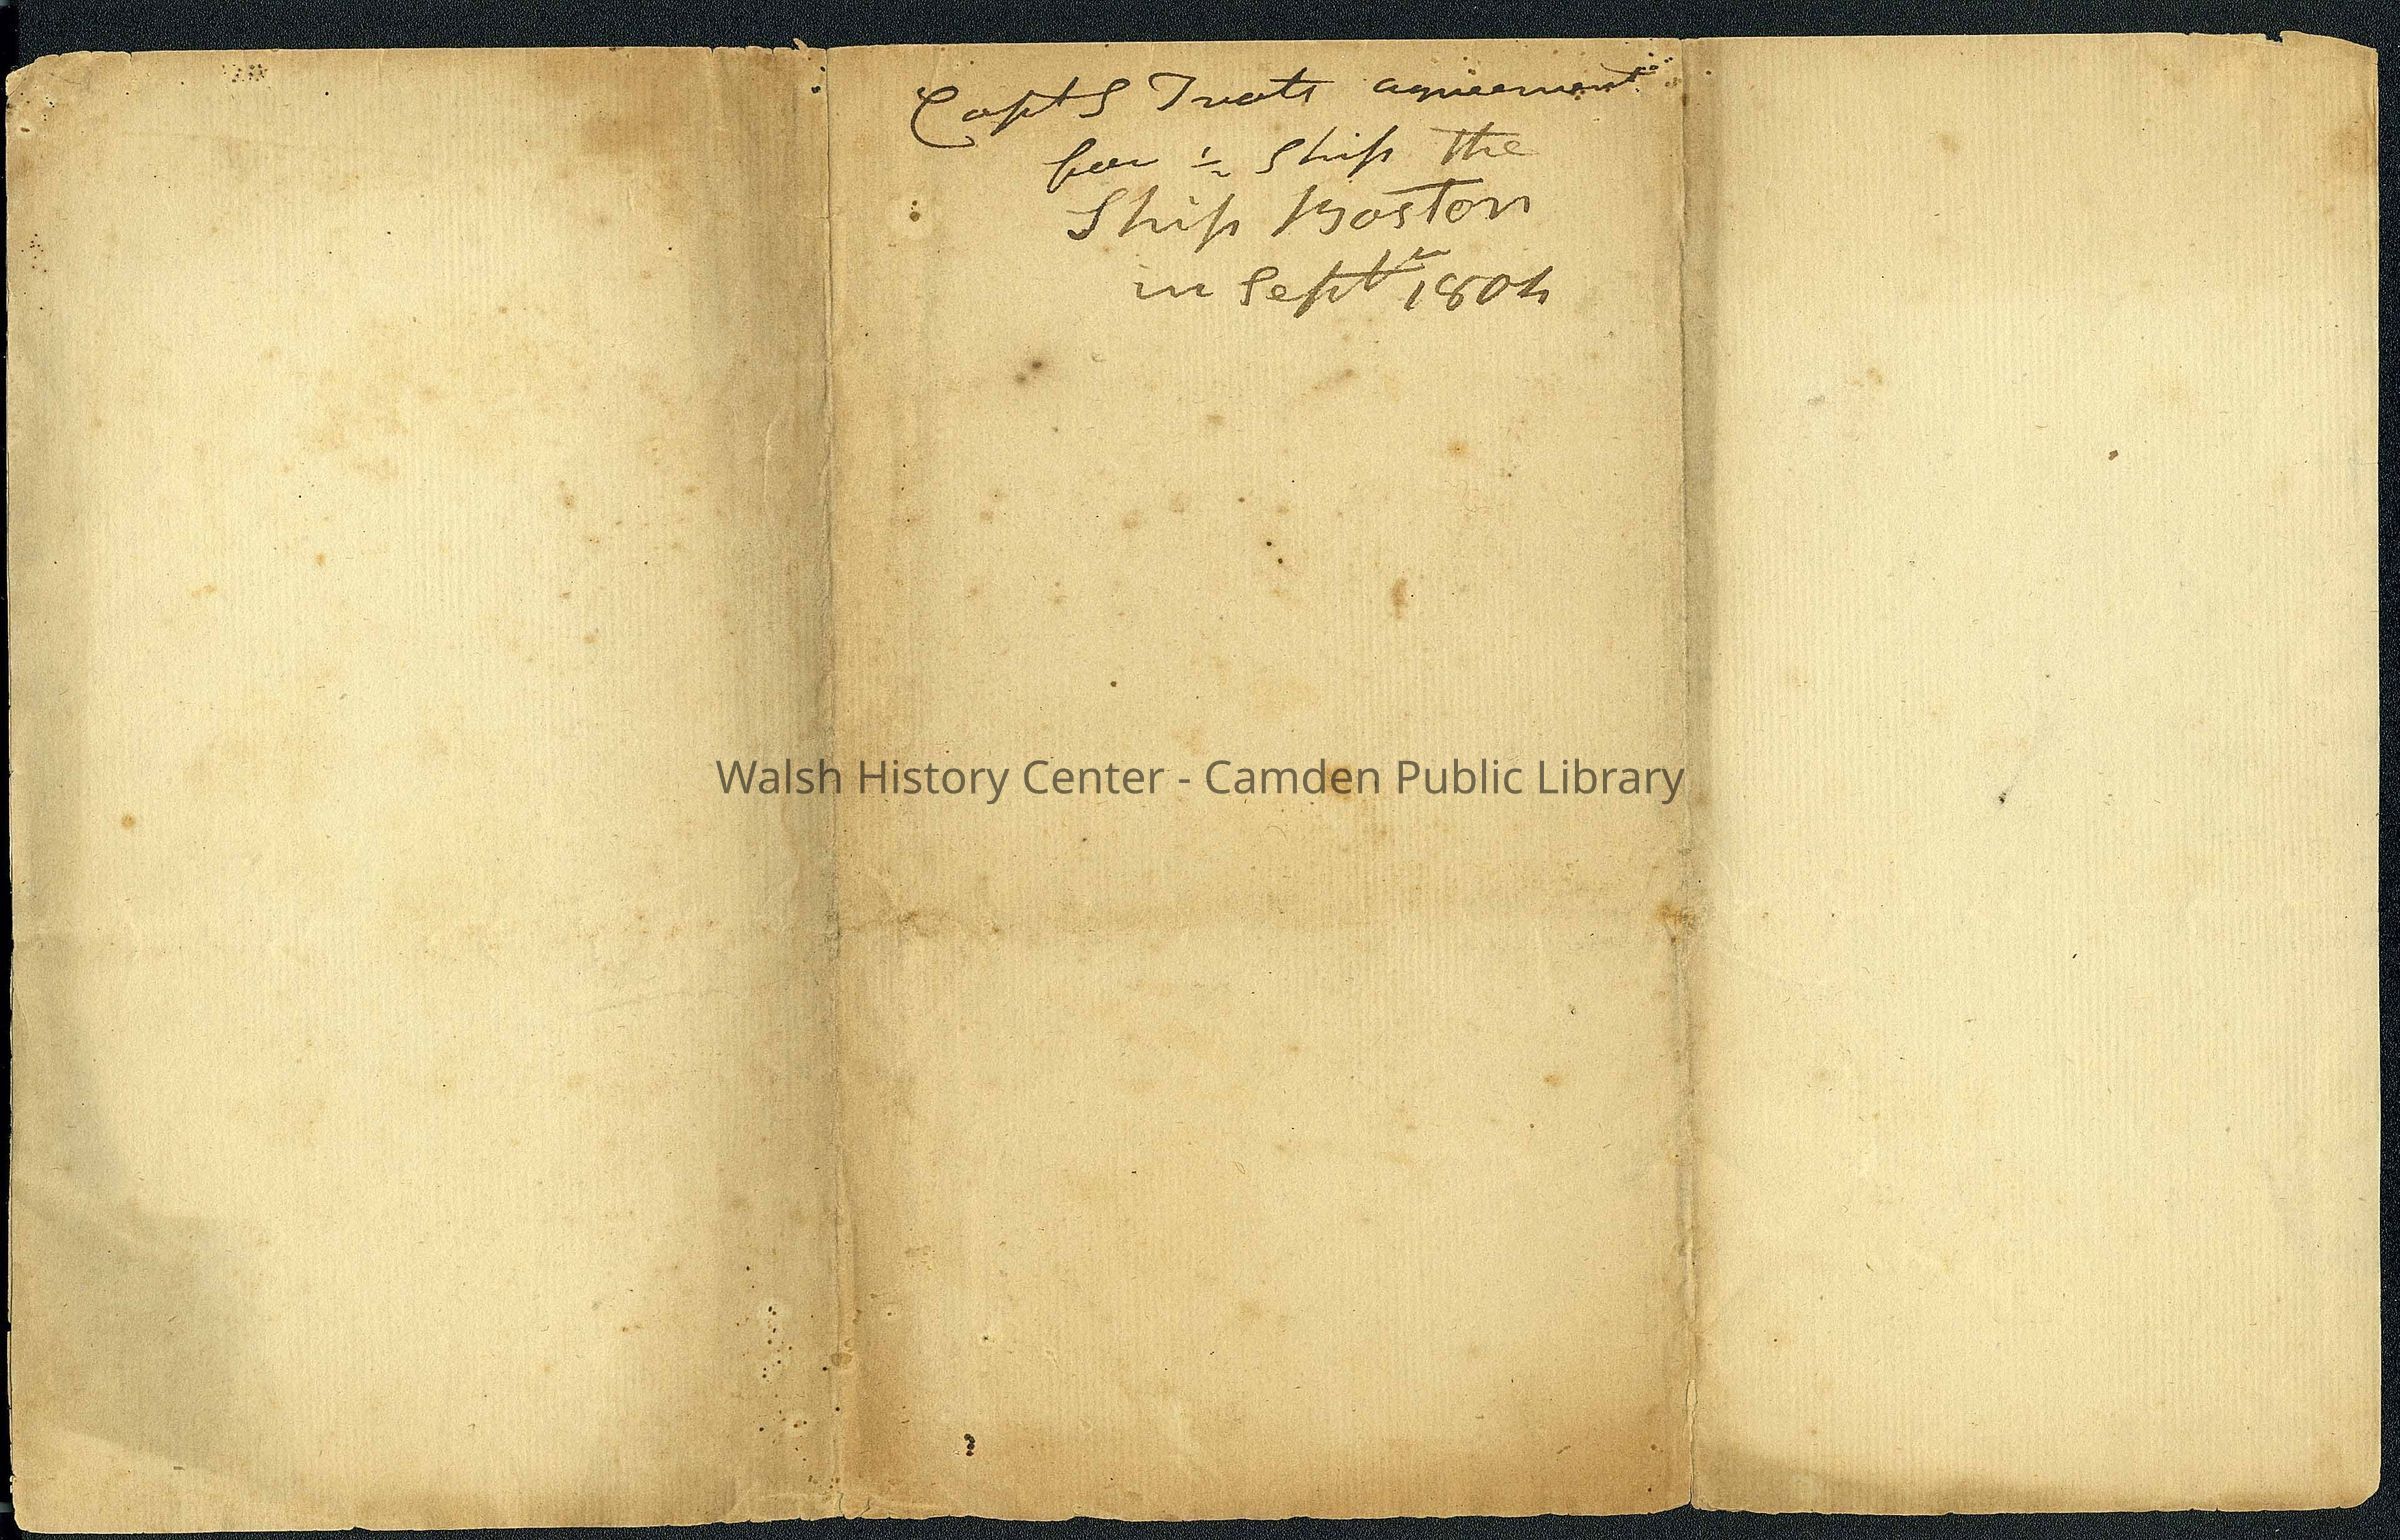 Capt S Treats agreement
for ½ Ship the
Ship Boston
in Septr 1804
Walsh History Center - Camden Public Library